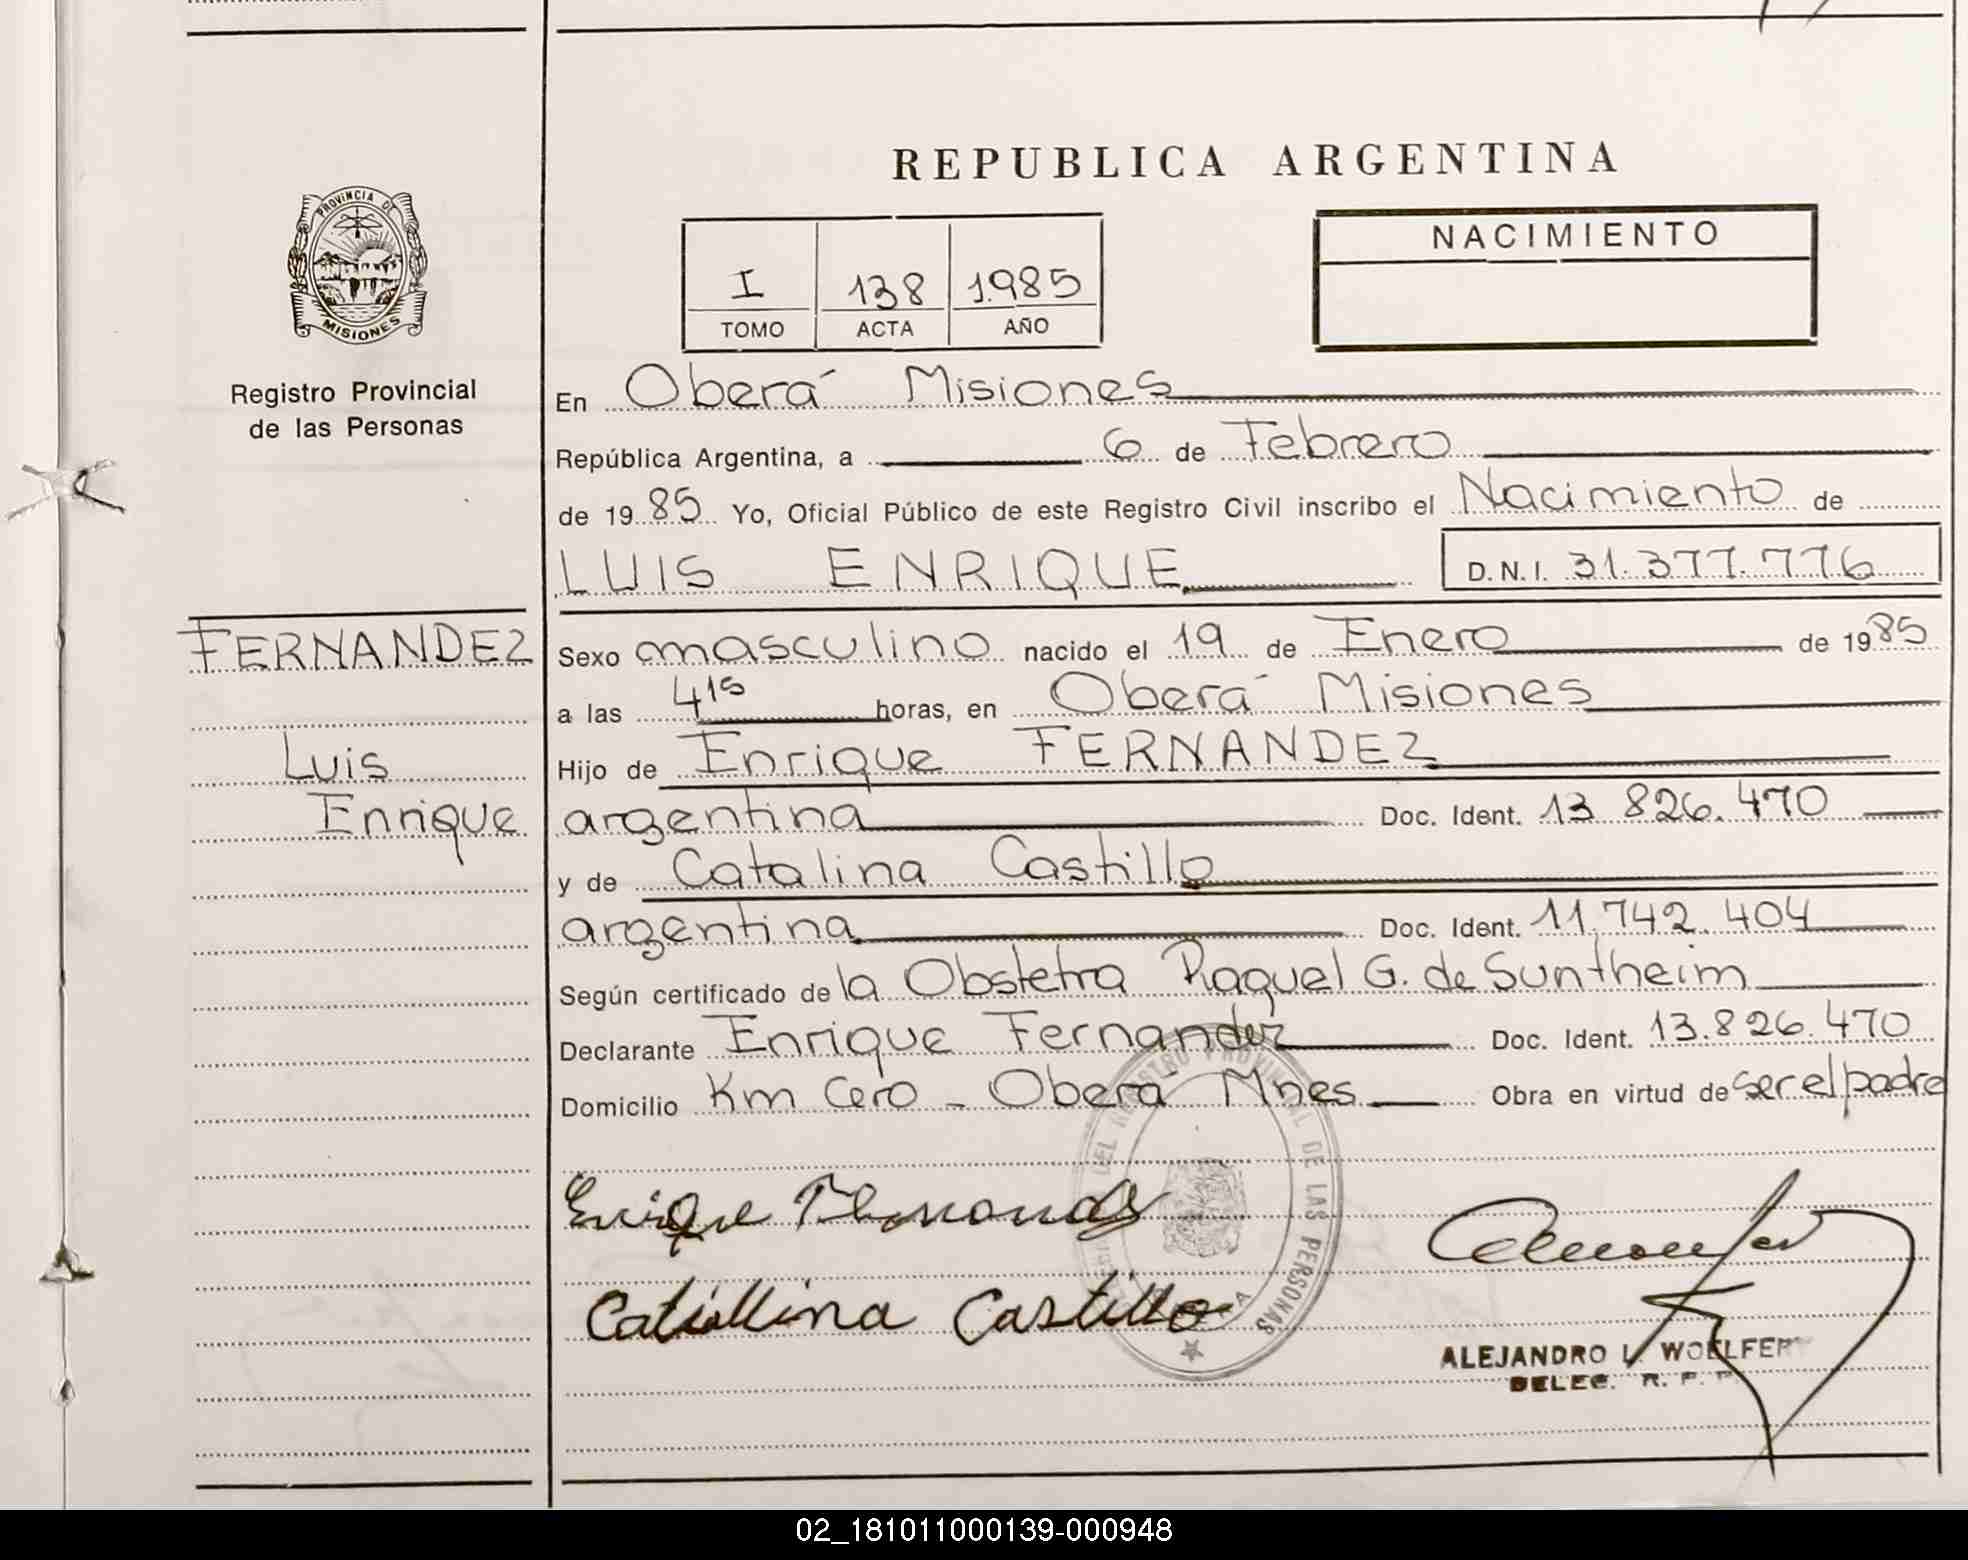 REPUBLICA ARGENTINA
PROVINCIA DE
MISIONES
Registro Provincial
de las Personas
I 138 1985
TOMO ACTA AÑO
NACIMIENTO
En Oberá Misiones
República Argentina, a 6 de Febrero
de 1985 Yo, Oficial Público de este Registro Civil inscribo el Nacimiento de
LUIS ENRIQUE D.N.I. 31.377.776
FERNANDEZ
Luis
Enrique
Sexo masculino nacido el 19 de Enero de 1985
a las 4 15 horas, en Oberá Misiones
Hijo de Enrique FERNANDEZ
argentina Doc. Ident. 13 826.470
y de Catalina Castillo
argentina Doc. Ident. 11.742.404
Según certificado de la Obstetra Raquel G. de Suntheim
Declarante Enrique Fernandez Doc. Ident. 13.826.470
Domicilio Km Cero - Oberá Mnes Obra en virtud de ser el padre
DEL REGISTRO PROVINCIAL DE LAS PERSONAS
Enrique Fernandez
Catalina Castillo
ALEJANDRO L. WOELFERT
DELEG. R. P. P.
02_181011000139-000948